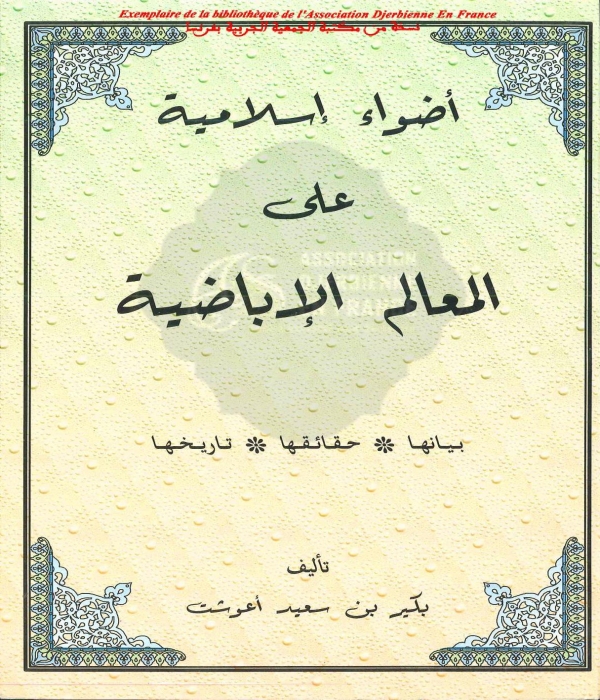 Exemplaire de la bibliothèque de l'Association Djerbienne En France
نسخة من مكتبة الجمعية الجربية بفرنسا
أضواء إسلامية
على
المعالم الإباضية
ASSOCIATION
DJERBIENNE
EN FRANCE
بيانها ❊ حقائقها ❊ تاريخها
تأليف
بكير بن سعيد أعوشت